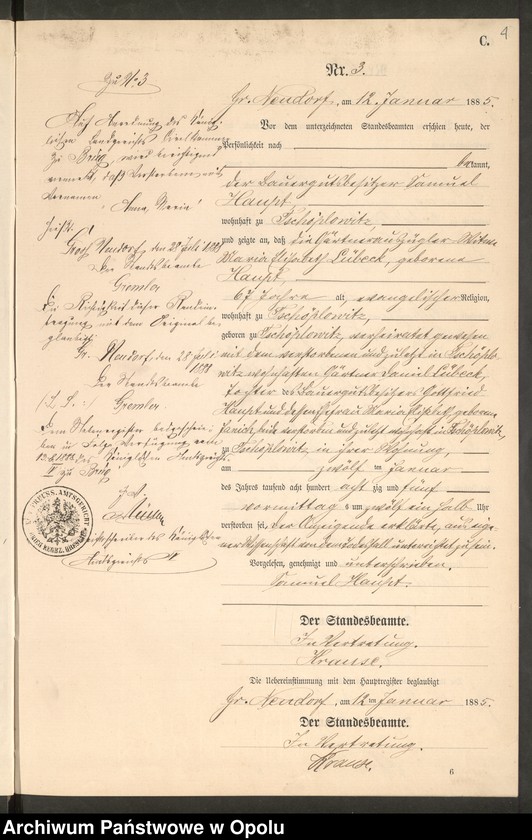 4
C.
Nr. 3.
Gr. Neudorf, am 12 Januar 1885.
Vor dem unterzeichneten Standesbeamten erschien heute, der
Persönlichkeit nach
bekannt,
der Bauergutsbesitzer Samuel
Haupt
wohnhaft zu Tschöplowitz,
und zeigte an, daß die Gärtnerauszügler Witwe
Maria Elisabeth Lübeck, geborene
Haupt,
67 Jahre alt, evangelischer Religion,
wohnhaft zu Tschöplowitz,
geboren zu Tschöplowitz, verheiratet gewesen
mit dem verstorbenen und zuletzt in Tschöplo-
witz wohnhaften Gärtner Daniel Lübeck,
Tochter des Bauergutsbesitzers Gottfried
Haupt und dessen Ehefrau Maria Elisabeth geborene
beide verstorben und zuletzt wohnhaft in Tschöplowitz
zu Tschöplowitz in ihrer Wohnung,
am zwölften Januar
des Jahres tausend acht hundert achtzig und fünf
vormittags um zwölf ein halb Uhr
verstorben sei, der Anzeigende erklärte, aus eige-
ner Wissenschaft von dem Todesfall unterrichtet zu sein.
Vorgelesen, genehmigt und unterschrieben.
Samuel Haupt.
Der Standesbeamte.
In Vertretung.
Krause.
Die Uebereinstimmung mit dem Hauptregister beglaubigt
Gr. Neudorf, am 12ten Januar 1885.
Der Standesbeamte.
In Vertretung.
Krause.
6
Zu No 3
Auf Anordnung des König-
lichen Landgerichts
zu Brieg, wird berichtigend
vermerkt, daß Verstorbene mit
Vornamen
"Anna, Maria"
heißt.
Groß Neudorf, den 28 Juli 1888
Der Standesbeamte
Gremler
Die Richtigkeit dieser Randein-
tragung mit dem Original be-
glaubigt
Gr. Neudorf, den 28 Juli
1888
Der Standesbeamte
(L. S.) Gremler
Dem Nebenregister
in Folge Verfügung vom
des Königlichen Amtsgerichts
II zu Brieg
des Königlichen
Amtsgerichts II
Archiwum Państwowe w Opolu